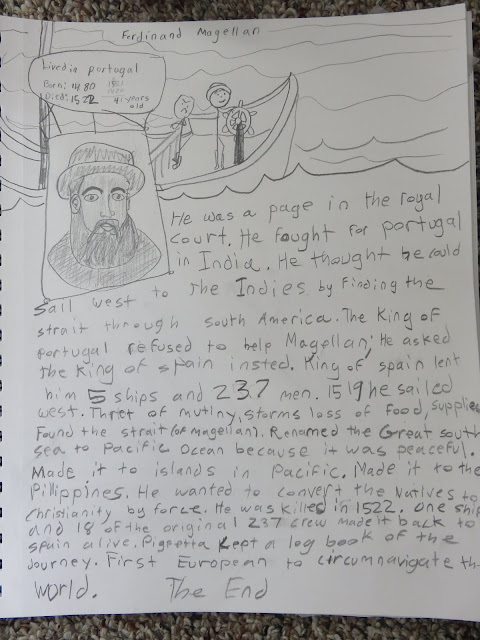 Ferdinand Magellan
Lived in portugal
Born: 1480
Died: 1522
41 years
old
He was a page in the royal
court. He fought for portugal
in India. He thought he could
sail west to the Indies by finding the
strait through south America. The King of
portugal refused to help Magellan; He asked
the King of spain insted. King of spain lent
him 5 ships and 237 men. 1519 he sailed
west. Thret of mutiny, storms loss of food, supplies
Found the strait (of magellan). Renamed the Great south
sea to Pacific Ocean because it was peaceful.
Made it to islands in Pacific. Made it to the
Pilippines. He wanted to convert the Natives to
Christianity by force. He was killed in 1522. One ship
and 18 of the original 237 crew made it back to
spain alive. Pigfetta kept a log book of the
Journey. First European to circumnavigate th
world. The End